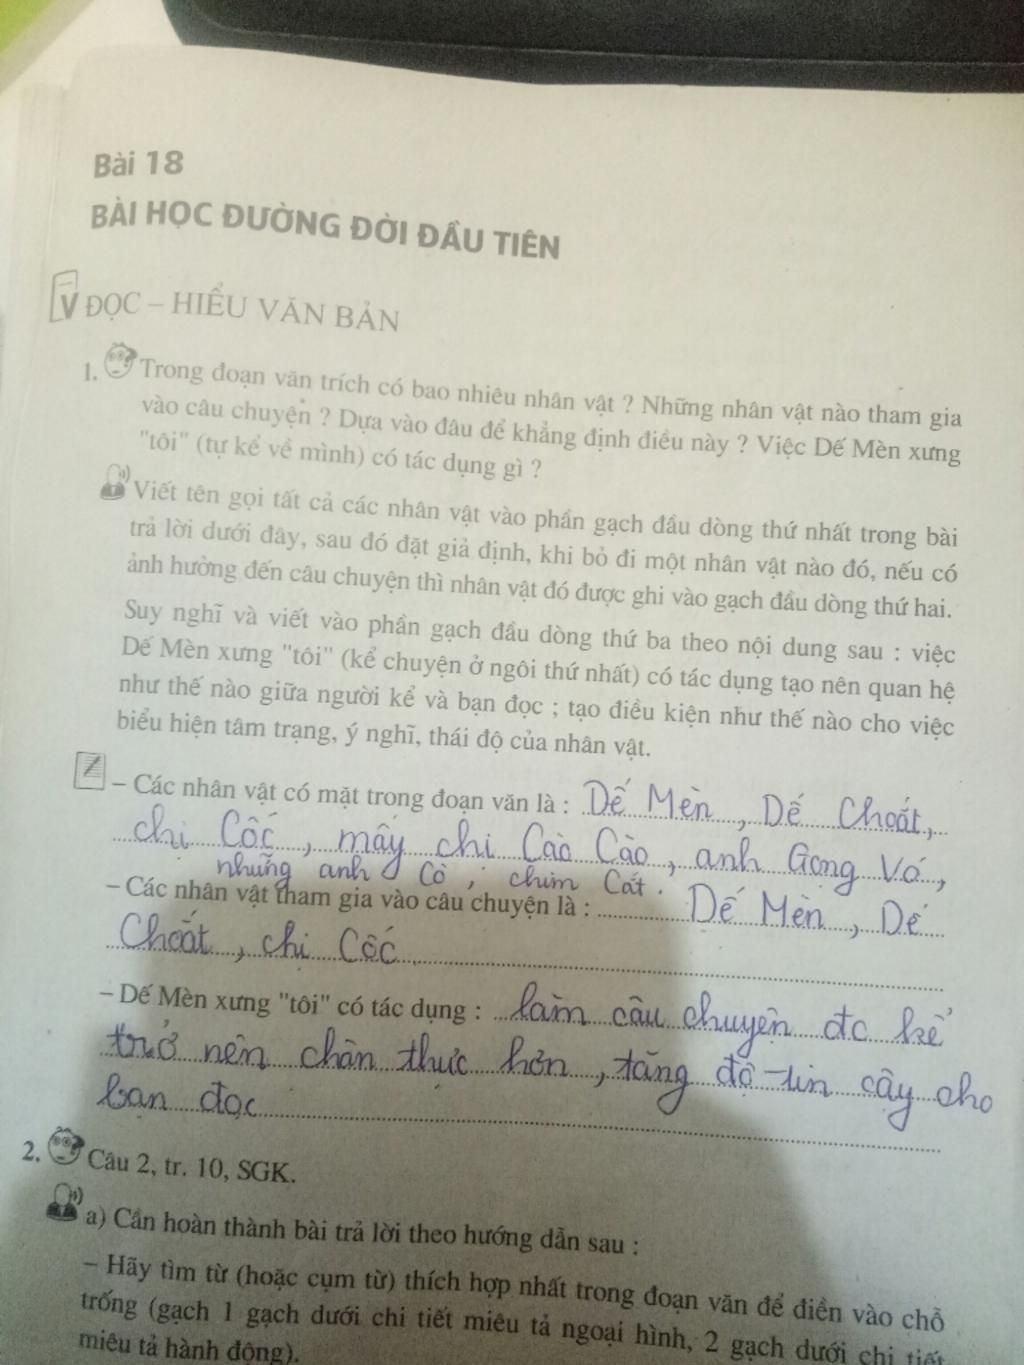 Bài 18
BÀI HỌC ĐƯỜNG ĐỜI ĐẦU TIÊN
V ĐỌC – HIỂU VĂN BẢN
1. Trong đoạn văn trích có bao nhiêu nhân vật ? Những nhân vật nào tham gia
vào câu chuyện ? Dựa vào đâu để khẳng định điều này ? Việc Dế Mèn xưng
"tôi" (tự kể về mình) có tác dụng gì ?
Viết tên gọi tất cả các nhân vật vào phần gạch đầu dòng thứ nhất trong bài
trả lời dưới đây, sau đó đặt giả định, khi bỏ đi một nhân vật nào đó, nếu có
ảnh hưởng đến câu chuyện thì nhân vật đó được ghi vào gạch đầu dòng thứ hai.
Suy nghĩ và viết vào phần gạch đầu dòng thứ ba theo nội dung sau : việc
Dế Mèn xưng "tôi" (kể chuyện ở ngôi thứ nhất) có tác dụng tạo nên quan hệ
như thế nào giữa người kể và bạn đọc ; tạo điều kiện như thế nào cho việc
biểu hiện tâm trạng, ý nghĩ, thái độ của nhân vật.
– Các nhân vật có mặt trong đoạn văn là : Dế Mèn, Dế Choắt,
chị Cốc, mấy chị Cào Cào, anh Gọng Vó,
những anh Cò, chim Cắt.
– Các nhân vật tham gia vào câu chuyện là : Dế Mèn, Dế
Choắt, chị Cốc
– Dế Mèn xưng "tôi" có tác dụng : làm câu chuyện đc kể
trở nên chân thực hơn, tăng độ tin cậy cho
bạn đọc
2. Câu 2, tr. 10, SGK.
a) Cần hoàn thành bài trả lời theo hướng dẫn sau :
– Hãy tìm từ (hoặc cụm từ) thích hợp nhất trong đoạn văn để điền vào chỗ
trống (gạch 1 gạch dưới chi tiết miêu tả ngoại hình, 2 gạch dưới chi tiết
miêu tả hành động).